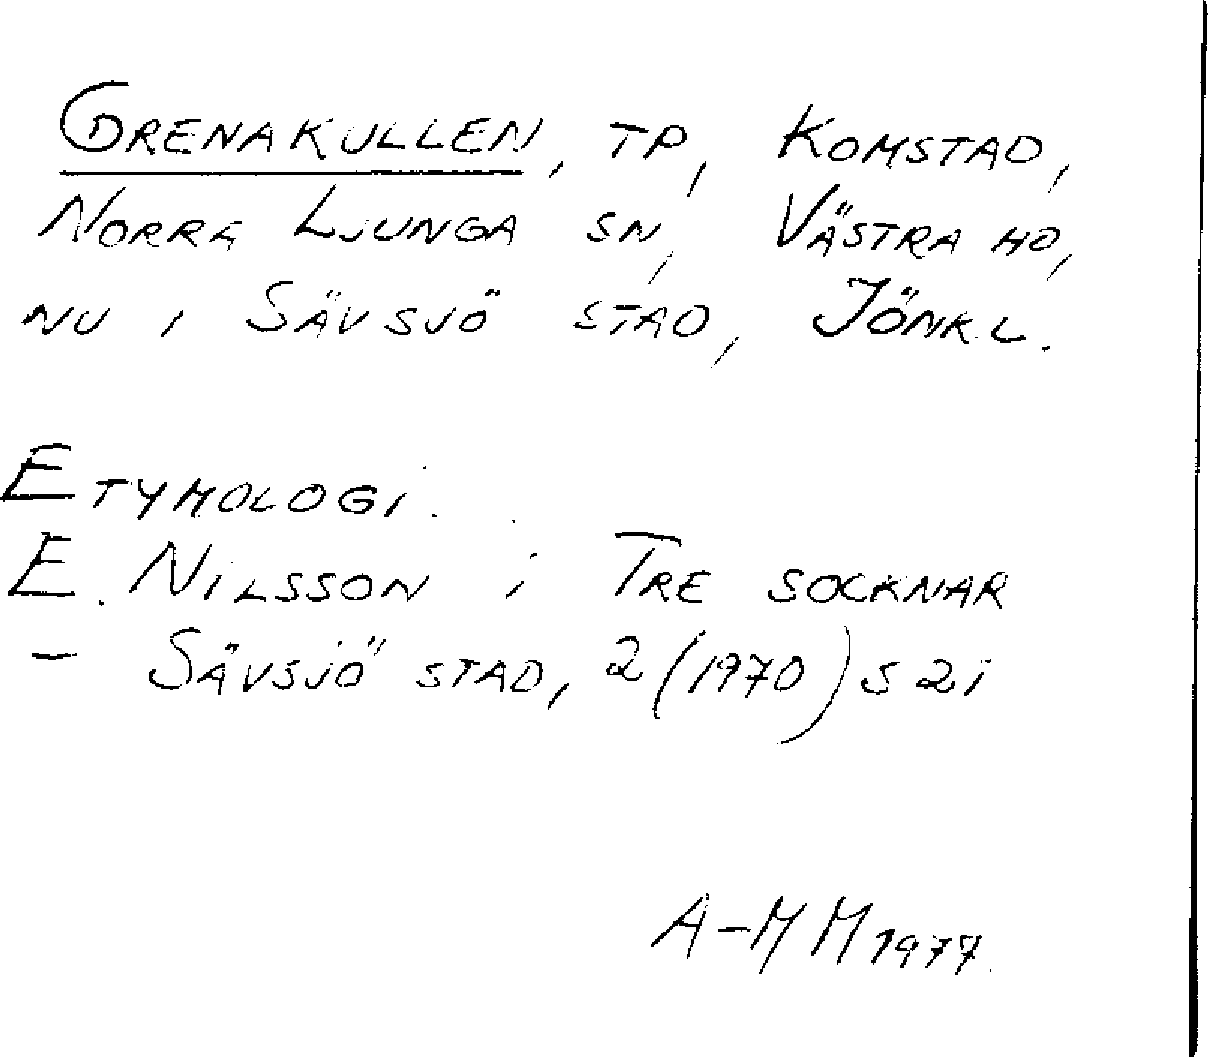 GRENAKULLEN, TP, KOMSTAD,
NORRA LJUNGA SN, VÄSTRA HD,
NU I SÄVSJÖ STAD, JÖNK.L.
ETYMOLOGI.
E. NILSSON i TRE SOCKNAR
- SÄVSJÖ STAD, 2 (1970) S 21
A-M M 1977.